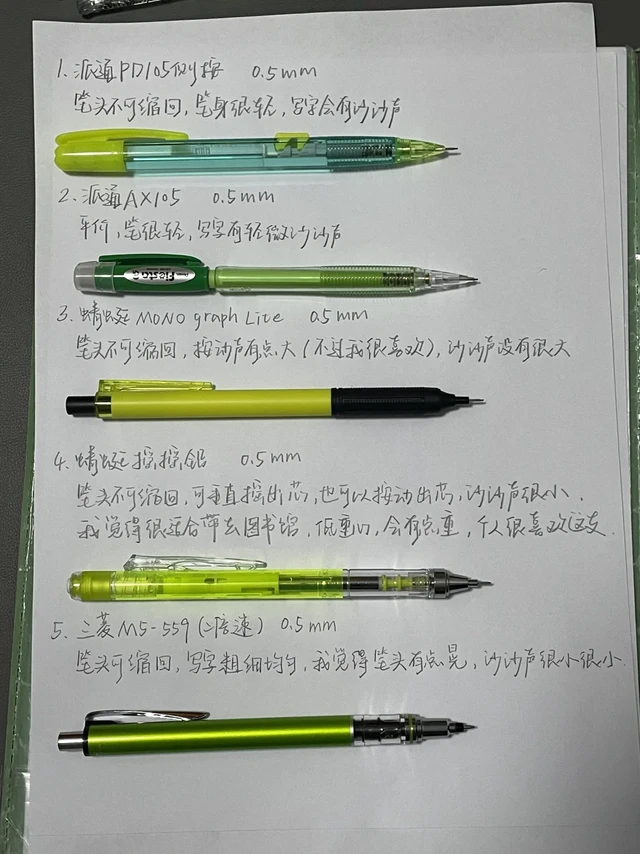 1. 派通PD105侧按 0.5mm
笔头不可缩回,笔身很轻,写字会有沙沙声
2. 派通AX105 0.5mm
平价,笔很轻,写字有轻微沙沙声
Fiesta
3. 蜻蜓 MONO graph Lite 0.5mm
笔头不可缩回,按动声有点大(不过我很喜欢),沙沙声没有很大
4. 蜻蜓摇摇铅 0.5mm
笔头不可缩回,可垂直摇出芯,也可以按动出芯,沙沙声很小,
我觉得很适合带去图书馆,低重心,会有点重,个人很喜欢这支.
5. 三菱M5-559(二倍速) 0.5mm
笔头可缩回,写字粗细均匀,我觉得笔头有点晃,沙沙声很小很小.